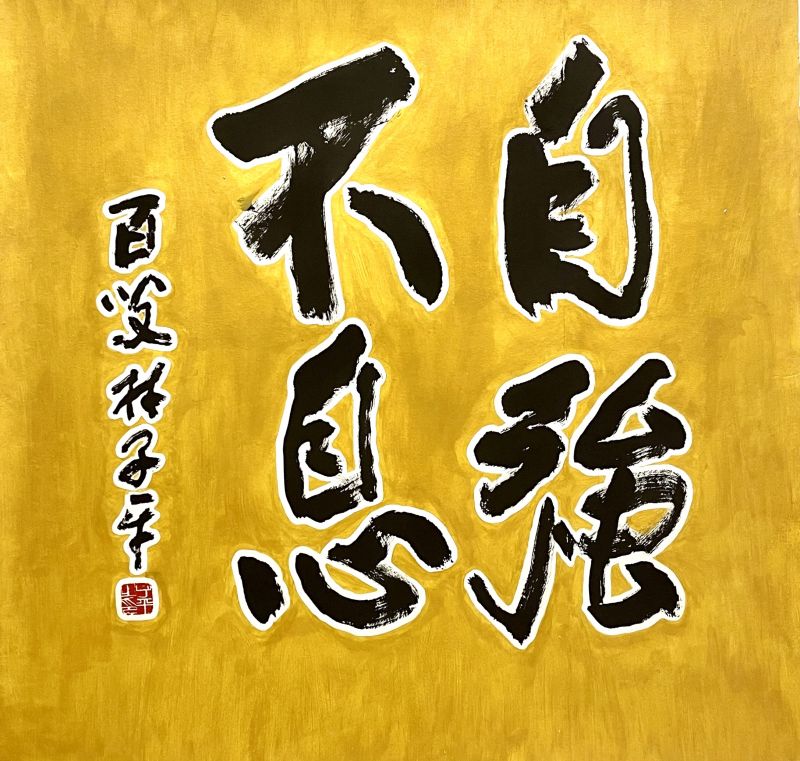 自強
不息
百叟林子平